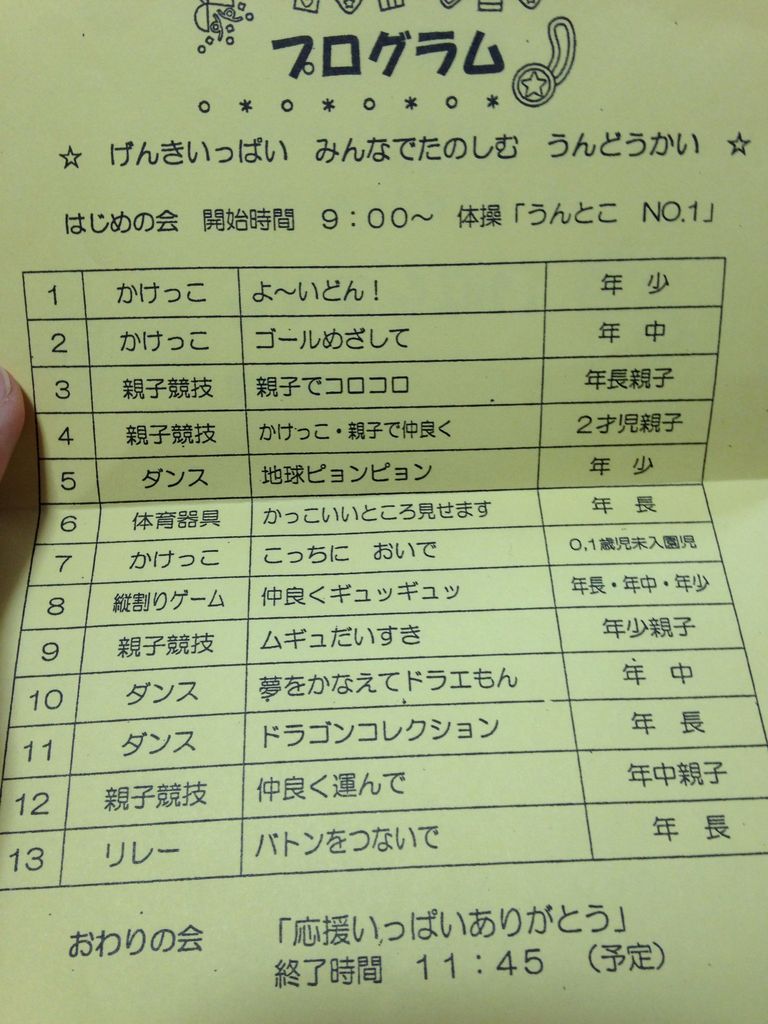 プログラム
☆ げんきいっぱい みんなでたのしむ うんどうかい ☆
はじめの会 開始時間 9:00〜 体操「うんとこ NO.1」
1 かけっこ よ〜いどん! 年 少
2 かけっこ ゴールめざして 年 中
3 親子競技 親子でコロコロ 年長親子
4 親子競技 かけっこ・親子で仲良く 2才児親子
5 ダンス 地球ピョンピョン 年 少
6 体育器具 かっこいいところ見せます 年 長
7 かけっこ こっちに おいで 0,1歳児未入園児
8 縦割りゲーム 仲良くギュッギュッ 年長・年中・年少
9 親子競技 ムギュだいすき 年少親子
10 ダンス 夢をかなえてドラエもん 年 中
11 ダンス ドラゴンコレクション 年 長
12 親子競技 仲良く運んで 年中親子
13 リレー バトンをつないで 年 長
おわりの会 「応援いっぱいありがとう」
終了時間 11:45 (予定)